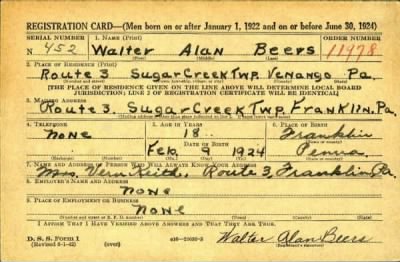 REGISTRATION CARD—(Men born on or after January 1, 1922 and on or before June 30, 1924)
SERIAL NUMBER 1. NAME (Print) ORDER NUMBER
N 452 Walter Alan Beers 11978
(First) (Middle) (Last)
2. PLACE OF RESIDENCE (Print)
Route 3 Sugar Creek Twp. Venango Pa.
(Number and street) (Town, township, village, or city) (County) (State)
[THE PLACE OF RESIDENCE GIVEN ON THE LINE ABOVE WILL DETERMINE LOCAL BOARD
JURISDICTION; LINE 2 OF REGISTRATION CERTIFICATE WILL BE IDENTICAL]
3. MAILING ADDRESS
Route 3, Sugar Creek Twp Franklin, Pa.
(Mailing address if other than place indicated on line 2. If same, insert word same)
4. TELEPHONE 5. AGE IN YEARS 6. PLACE OF BIRTH
None 18 Franklin
DATE OF BIRTH
Feb 9 1924 Penna
(Exchange) (Number) (Mo.) (Day) (Yr.) (State or country)
7. NAME AND ADDRESS OF PERSON WHO WILL ALWAYS KNOW YOUR ADDRESS
Mrs. Vern Keith, Route 3, Franklin Pa.
8. EMPLOYER'S NAME AND ADDRESS
None
9. PLACE OF EMPLOYMENT OR BUSINESS
None
(Number and street or R. F. D. number) (Town) (County) (State)
I AFFIRM THAT I HAVE VERIFIED ABOVE ANSWERS AND THAT THEY ARE TRUE.
D. S. S. Form 1
(Revised 6-1-42) (over) Walter Alan Beers